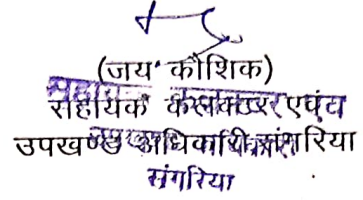 (जय कौशिक)
सहायक कलक्टर एवंम
उपखण्ड अधिकारी संगरिया
संगरिया